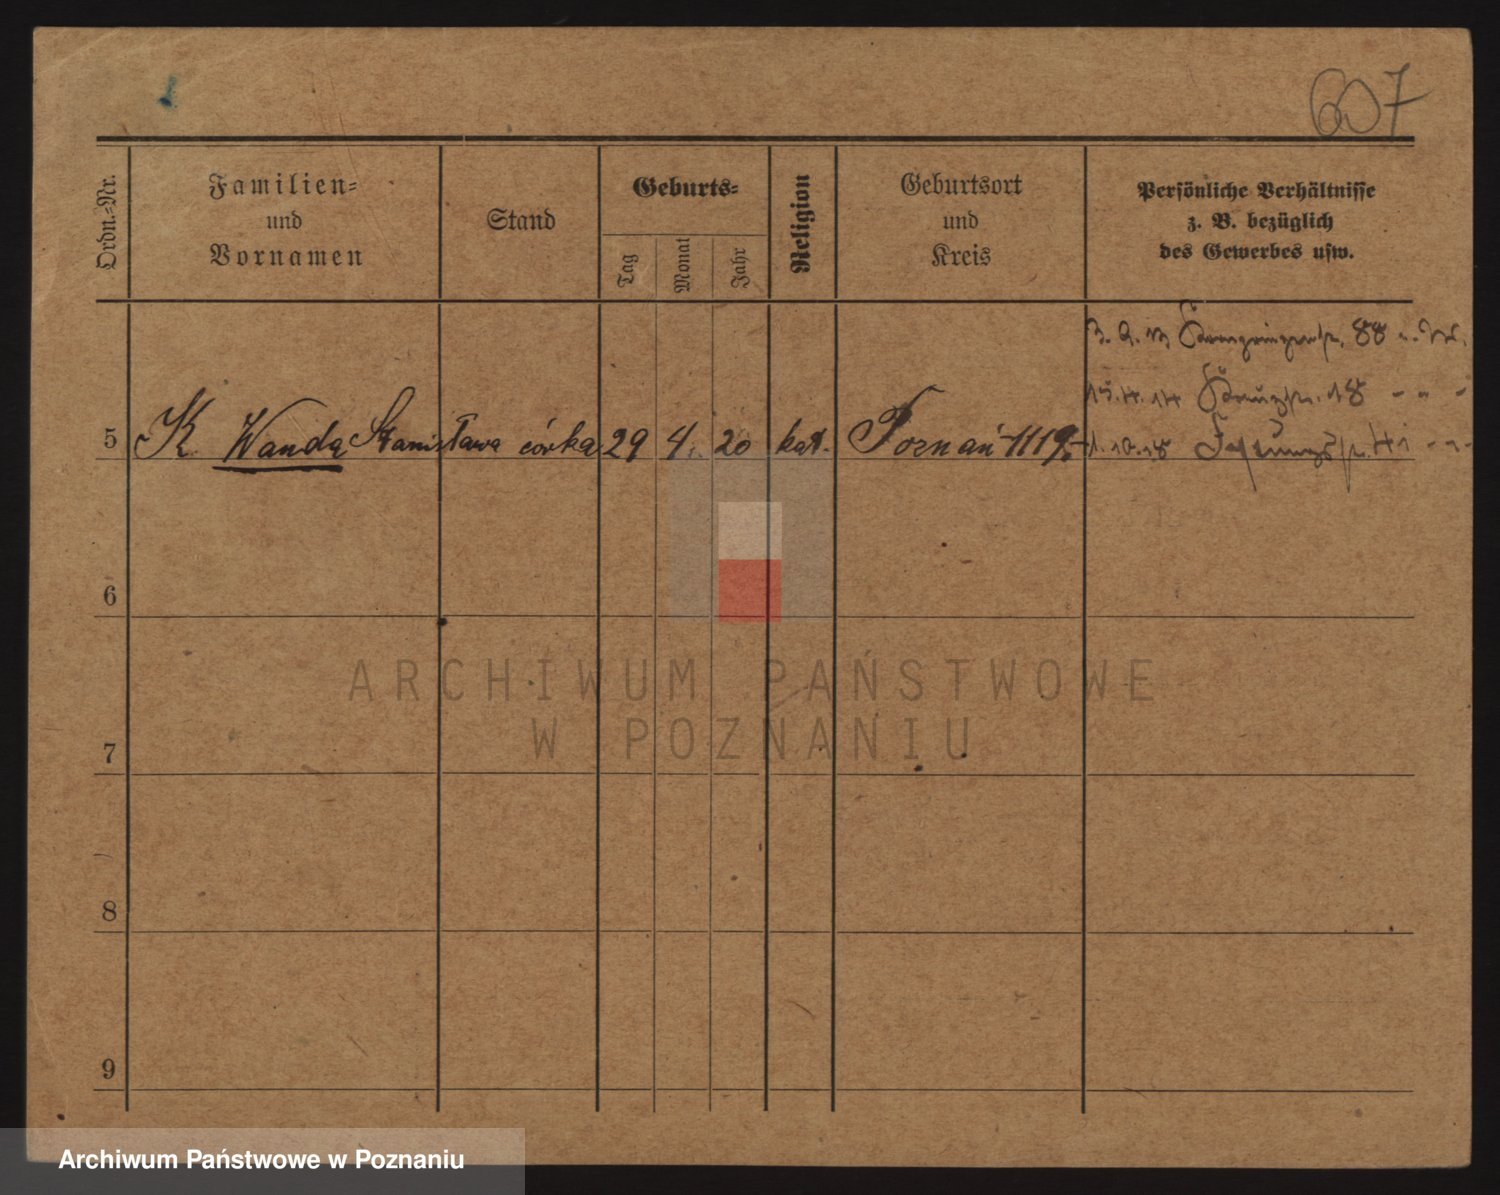 607
Ordn.-Nr.
Familien-
und
Vornamen
Stand
Geburts-
Tag
Monat
Jahr
Religion
Geburtsort
und
Kreis
Persönliche Verhältnisse
z. B. bezüglich
des Gewerbes usw.
88
15.4.14 18 - " -
5 K. Wanda Stanisława córka 29 4. 20 kat. Poznań 1119. 1.10.18
6
7
8
9
ARCHIWUM PAŃSTWOWE
W POZNANIU
Archiwum Państwowe w Poznaniu